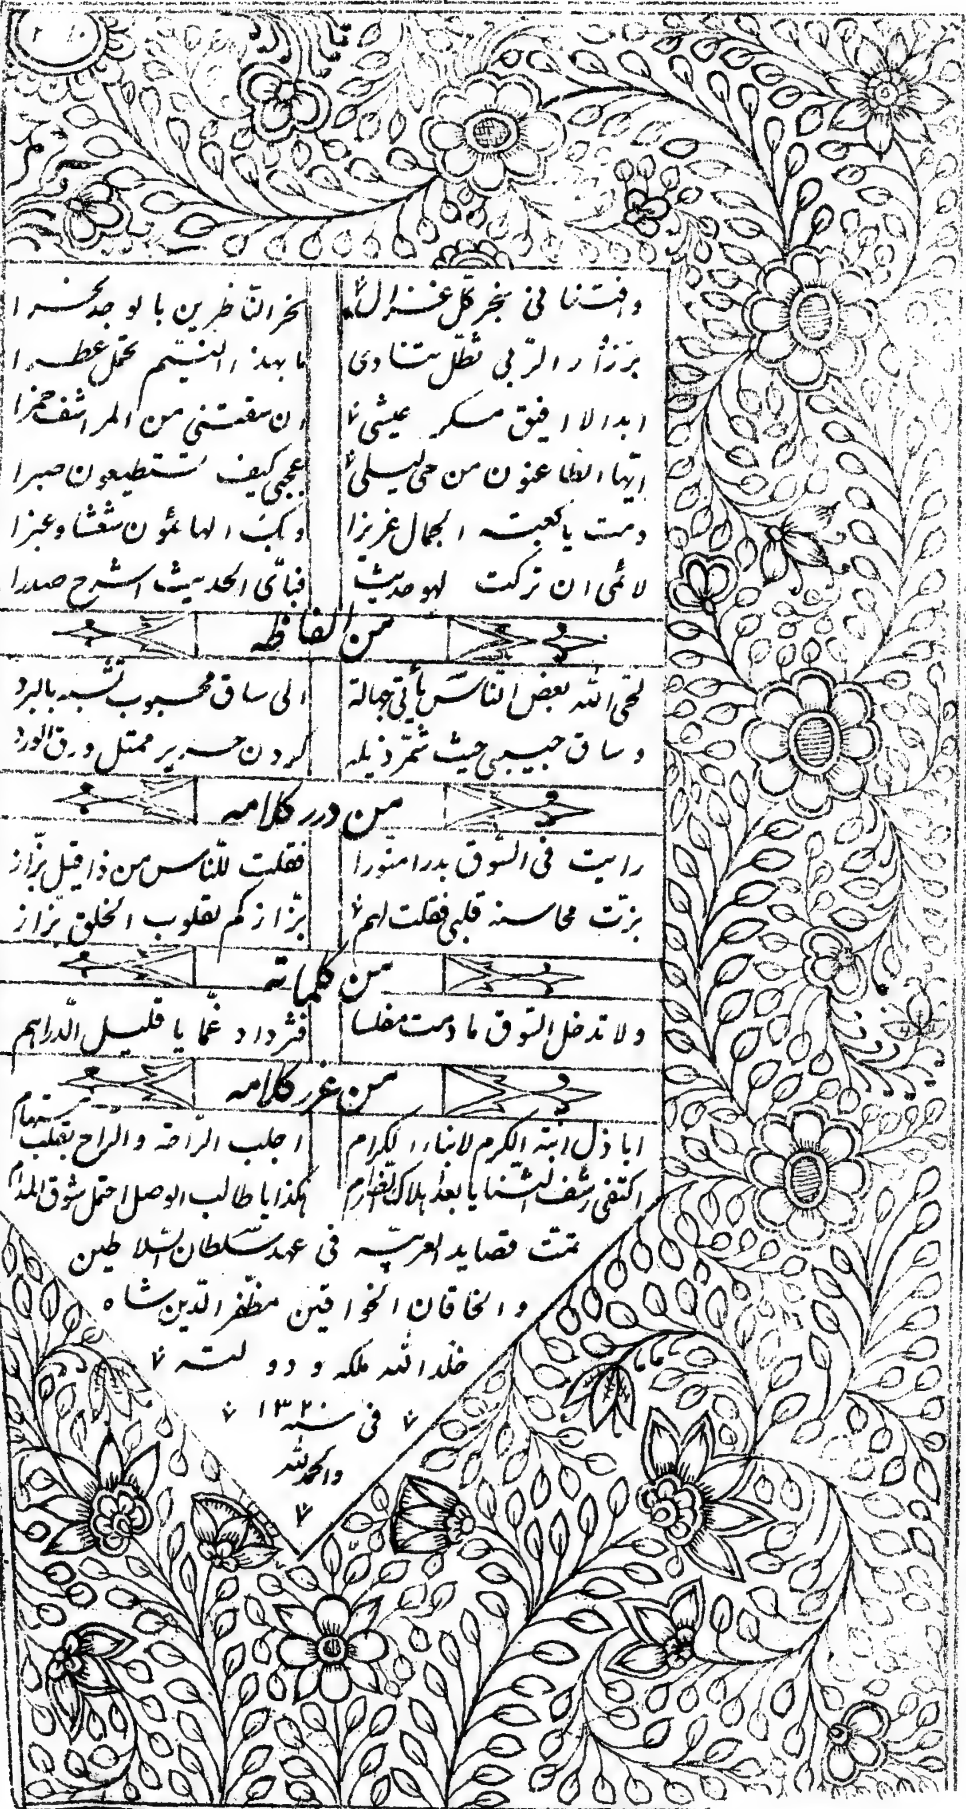 وافتتنا فی بحر کل غزال نحر الناظرین بالوجد نحرا
بارز الربی تظل تنادی ما بهذا النسیم تحمل عطرا
ابدا لا افیق سکر عیشی ان سقتنی من المراشف خمرا
ایّها الظاعنون من حی لیلی عجبی کیف تستطیعون صبرا
دمت یا کعبته الجمال عزیزا وکبت الهائمون شعثا وغبرا
لائمی ان ترکت لهو حدیث فبای الحدیث اشرح صدرا
من الفاظه
لحی الله بعض الناس یأتی جهالة الی ساق محبوب تشبه بالبرد
وساق حبیبی حیث شمّر ذیله کردن حریر ممتل ورق الورد
من درر کلامه
رایت فی السّوق بدرا منوّرا فقلت للنّاس من ذا قیل بزّاز
بزّت محاسنه قلبی فقلت لهم بزّاز کم لقلوب الخلق بزاز
من کلماته
ولا تدخل السّوق ما دمت مفلسا فتزداد غمّا یا قلیل الدّراهم
من غرر کلامه
اباذل ابنة الکرم لابناء الکرام اجلب الرّاحة والرّاح بقلب مستهام
اکتفی رشف الثنایا بعد هلاک هکذا یا طالب الوصل احتمل شوق
تمت قصاید العربیّه فی عهد سلطان السّلاطین
والخاقان الخواقین مظفر الدّین شاه
خلد الله ملکه و دولته
فی سنه ۱۳۲۰
والحمد لله